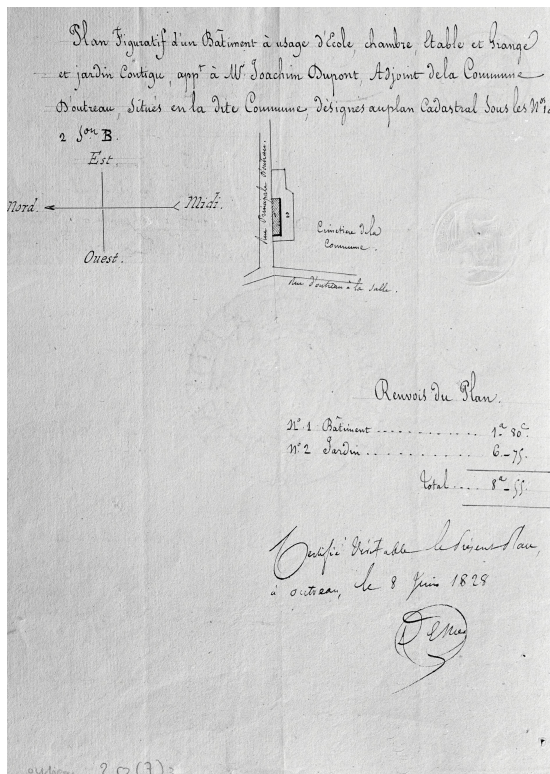 Plan Figuratif d'un Bâtiment à usage d'Ecole, chambre, Etable et Grange
et jardin Contigu, app.t à M.r Joachin Dupont, Adjoint de la Commune
D'outreau, Situés en la dite Commune, désignés au plan Cadastral Sous les N.os 1 et
2 S.on B.
Est.
Nord.
Midi.
Ouest.
Rue Principale d'outreau.
Cimetière de la
Commune.
Rue d'outreau à la Salle.
Renvois du Plan.
N.o 1 Bâtiment .......... 1.a 80.c
N.o 2 Jardin .......... 6 - 75.
Total .... 8.a - 55.
Certifié Véritable le Présent Plan,
à outreau, le 8 Juin 1828
20(7)